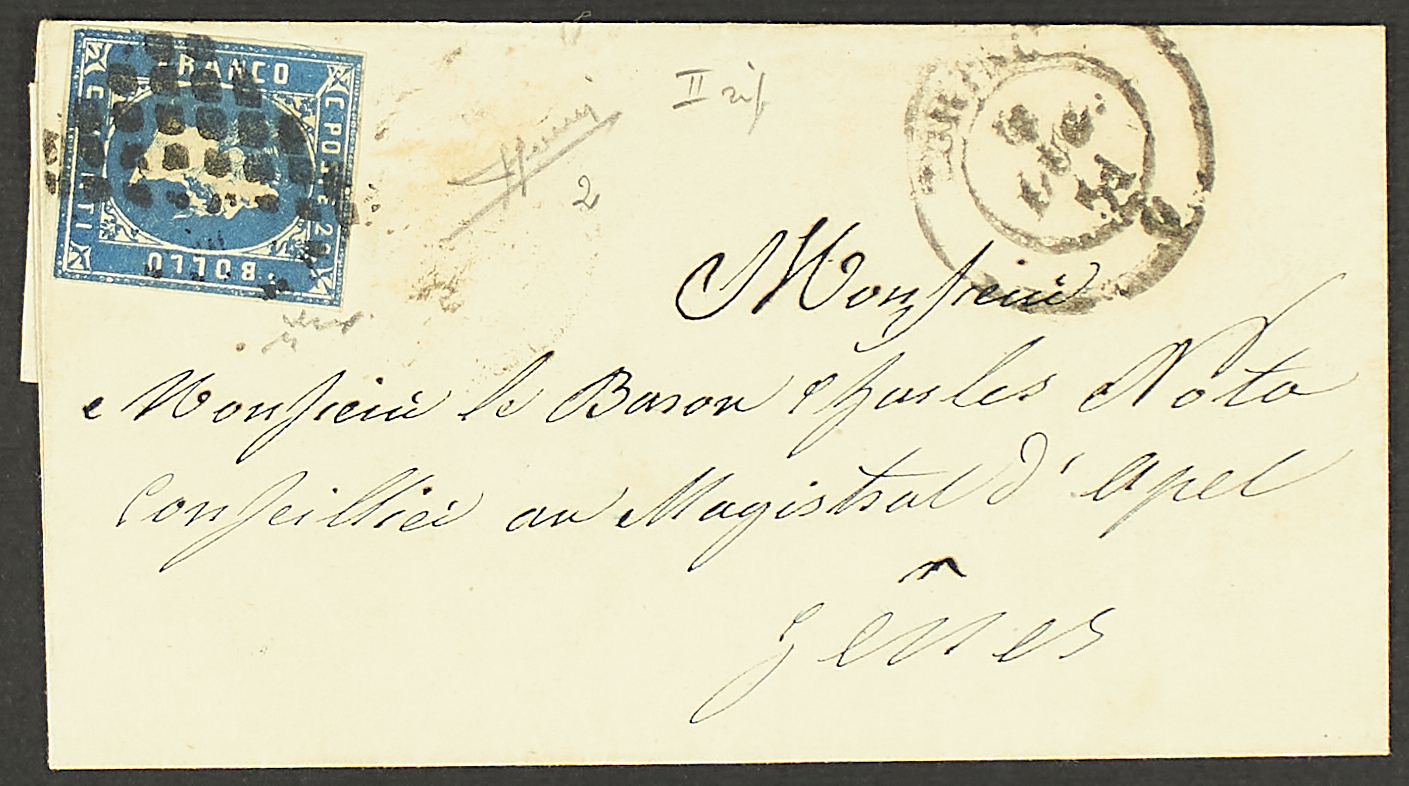 FRANCO
C. POSTE 20
BOLLO
II
2
TORINO
LUG.
51
Monsieur
Monsieur le Baron Charles Nota
Conseillier au Magistrat d'Apel
Gênes